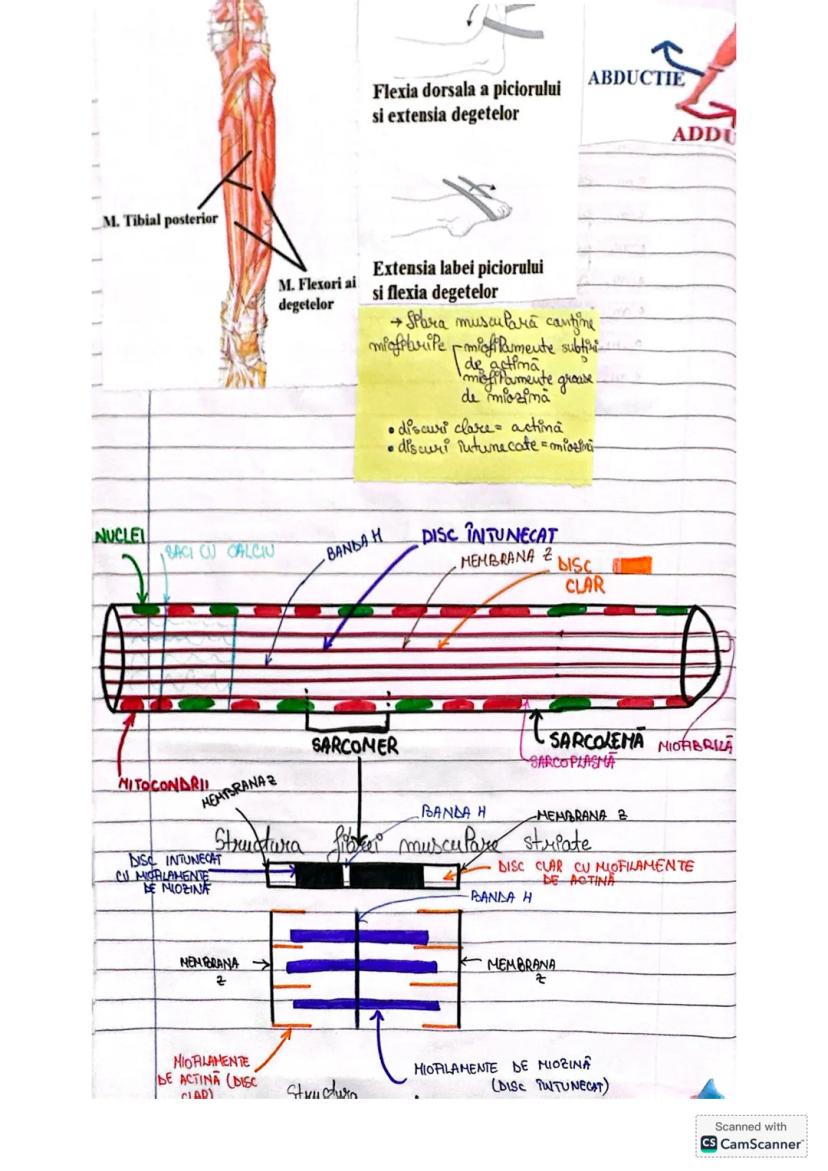 Flexia dorsala a piciorului
si extensia degetelor
ABDUCTIE
ADDU
M. Tibial posterior
M. Flexori ai
degetelor
Extensia labei piciorului
si flexia degetelor
→ Fibra musculară conține
miofibrile
miofilamente subțiri
de actină
miofilamente groase
de miozină
• discuri clare = actină
• discuri întunecate = miozină
NUCLEI
SACI CU CALCIU
BANDA H
DISC ÎNTUNECAT
MEMBRANA Z
DISC
CLAR
SARCOMER
SARCOLEMĂ
MIOFIBRILĂ
SARCOPLASMĂ
MITOCONDRII
MEMBRANA Z
BANDA H
MEMBRANA Z
Structura fibrei musculare striate
DISC INTUNECAT
CU MIOFILAMENTE
DE MIOZINĂ
DISC CLAR CU MIOFILAMENTE
DE ACTINĂ
BANDA H
MEMBRANA
Z
MEMBRANA
Z
MIOFILAMENTE
DE ACTINĂ (DISC
CLAR)
MIOFILAMENTE DE MIOZINĂ
(DISC ÎNTUNECAT)
Structura
Scanned with
CS CamScanner